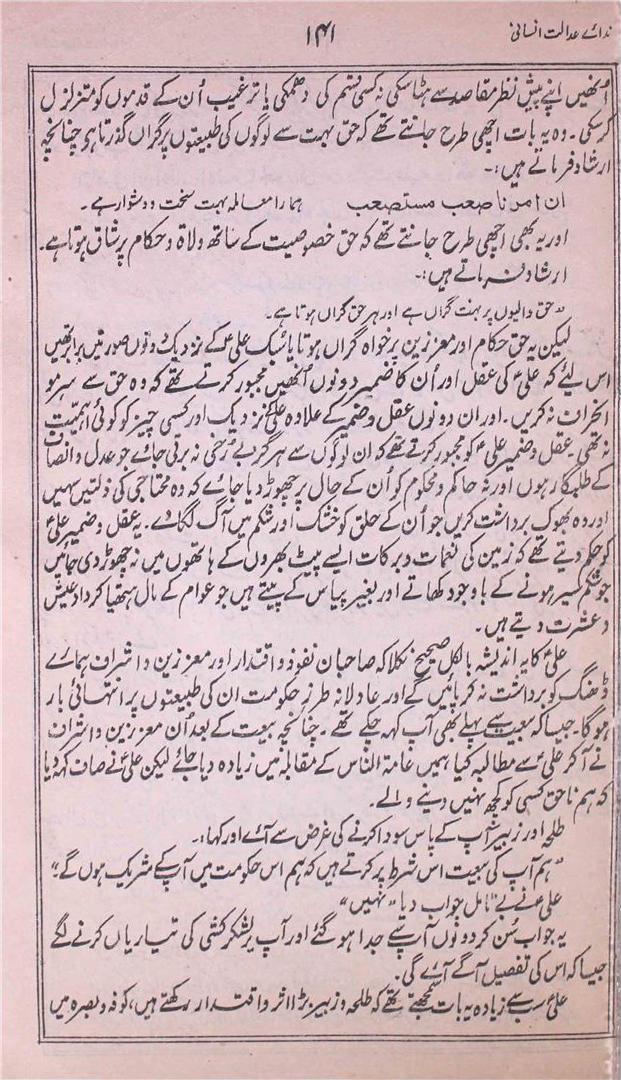 ندائے عدالت انسانی ۱۴۱
اُنھیں اپنے پیش نظر مقاصد سے ہٹا سکی نہ کسی قسم کی دھمکی یا ترغیب اُن کے قدموں کو متزلزل
کر سکی۔ وہ یہ بات اچھی طرح جانتے تھے کہ حق بہت سے لوگوں کی طبیعتوں پر گراں گذرتا ہے چنانچہ
ارشاد فرماتے ہیں:۔
ان امرنا صعب مستصعب ہمارا معاملہ بہت سخت و دشوار ہے۔
اور یہ بھی اچھی طرح جانتے تھے کہ حق خصوصیت کے ساتھ ولاۃ و حکام پر شاق ہوتا ہے۔
ارشاد فرماتے ہیں:۔
”حق والیوں پر بہت گراں ہے اور ہر حق گراں ہوتا ہے۔
لیکن یہ حق حکام اور معززین پر خواہ گراں ہوتا یا سبک علیؑ کے نزدیک دونوں صورتیں برابر تھیں
اس لیئے کہ علیؑ کی عقل اور اُن کا ضمیر دونوں اُنھیں مجبور کرتے تھے کہ وہ حق سے سرمو
انحراف نہ کریں۔ اور ان دونوں عقل و ضمیر کے علاوہ علیؑ کے نزدیک اور کسی چیز کو کوئی اہمیت
نہ تھی۔ عقل و ضمیر علیؑ کو مجبور کرتے تھے کہ ان لوگوں سے ہرگز بے رحمی نہ برتی جائے جو عدل و انصاف
کے طلبگار ہوں اور نہ حاکم و محکوم کو اُن کے حال پر چھوڑ دیا جائے کہ وہ محتاجی کی ذلتیں سہیں
اور وہ بھوک برداشت کریں جو اُن کے حلق کو خشک اور شکم میں آگ لگا دے۔ یہ عقل و ضمیر علیؑ
کو حکم دیتے تھے کہ زمین کی نعمات و برکات ایسے پیٹ بھروں کے ہاتھوں میں نہ چھوڑ دی جائیں
جو شکم سیر ہونے کے باوجود کھاتے اور بغیر پیاس کے پیتے ہیں جو عوام کے مال ہتھیا کر داد عیش
و عشرت دیتے ہیں۔
علیؑ کا یہ اندیشہ بالکل صحیح نکلا کہ صاحبان نفوذ و اقتدار اور معززین و اشراف ہمارے
ڈھنگ کو برداشت نہ کر پائیں گے اور عادلانہ طرز حکومت ان کی طبیعتوں پر انتہائی بار
ہوگا۔ جیسا کہ بیعت سے پہلے بھی آپ کہہ چکے تھے۔ چنانچہ بیعت کے بعد اُن معززین و اشراف
نے آ کر علیؑ سے مطالبہ کیا ہمیں عامۃ الناس کے مقابلہ میں زیادہ دیا جائے لیکن علیؑ نے صاف کہہ دیا
کہ ہم ناحق کسی کو کچھ نہیں دینے والے۔
طلحہ اور زبیر آپ کے پاس سودا کرنے کی غرض سے آئے اور کہا:۔
”ہم آپ کی بیعت اس شرط پر کرتے ہیں کہ ہم اس حکومت میں آپ کے شریک ہوں گے؛“
علیؑ نے بے تامل جواب دیا ”نہیں“
یہ جواب سُن کر دونوں آپ سے جدا ہو گئے اور آپ پر لشکر کشی کی تیاریاں کرنے لگے
جیسا کہ اس کی تفصیل آگے آئے گی۔
علیؑ سب سے زیادہ یہ بات سمجھتے تھے کہ طلحہ و زبیر بڑا اثر و اقتدار رکھتے ہیں، کوفہ و بصرہ میں